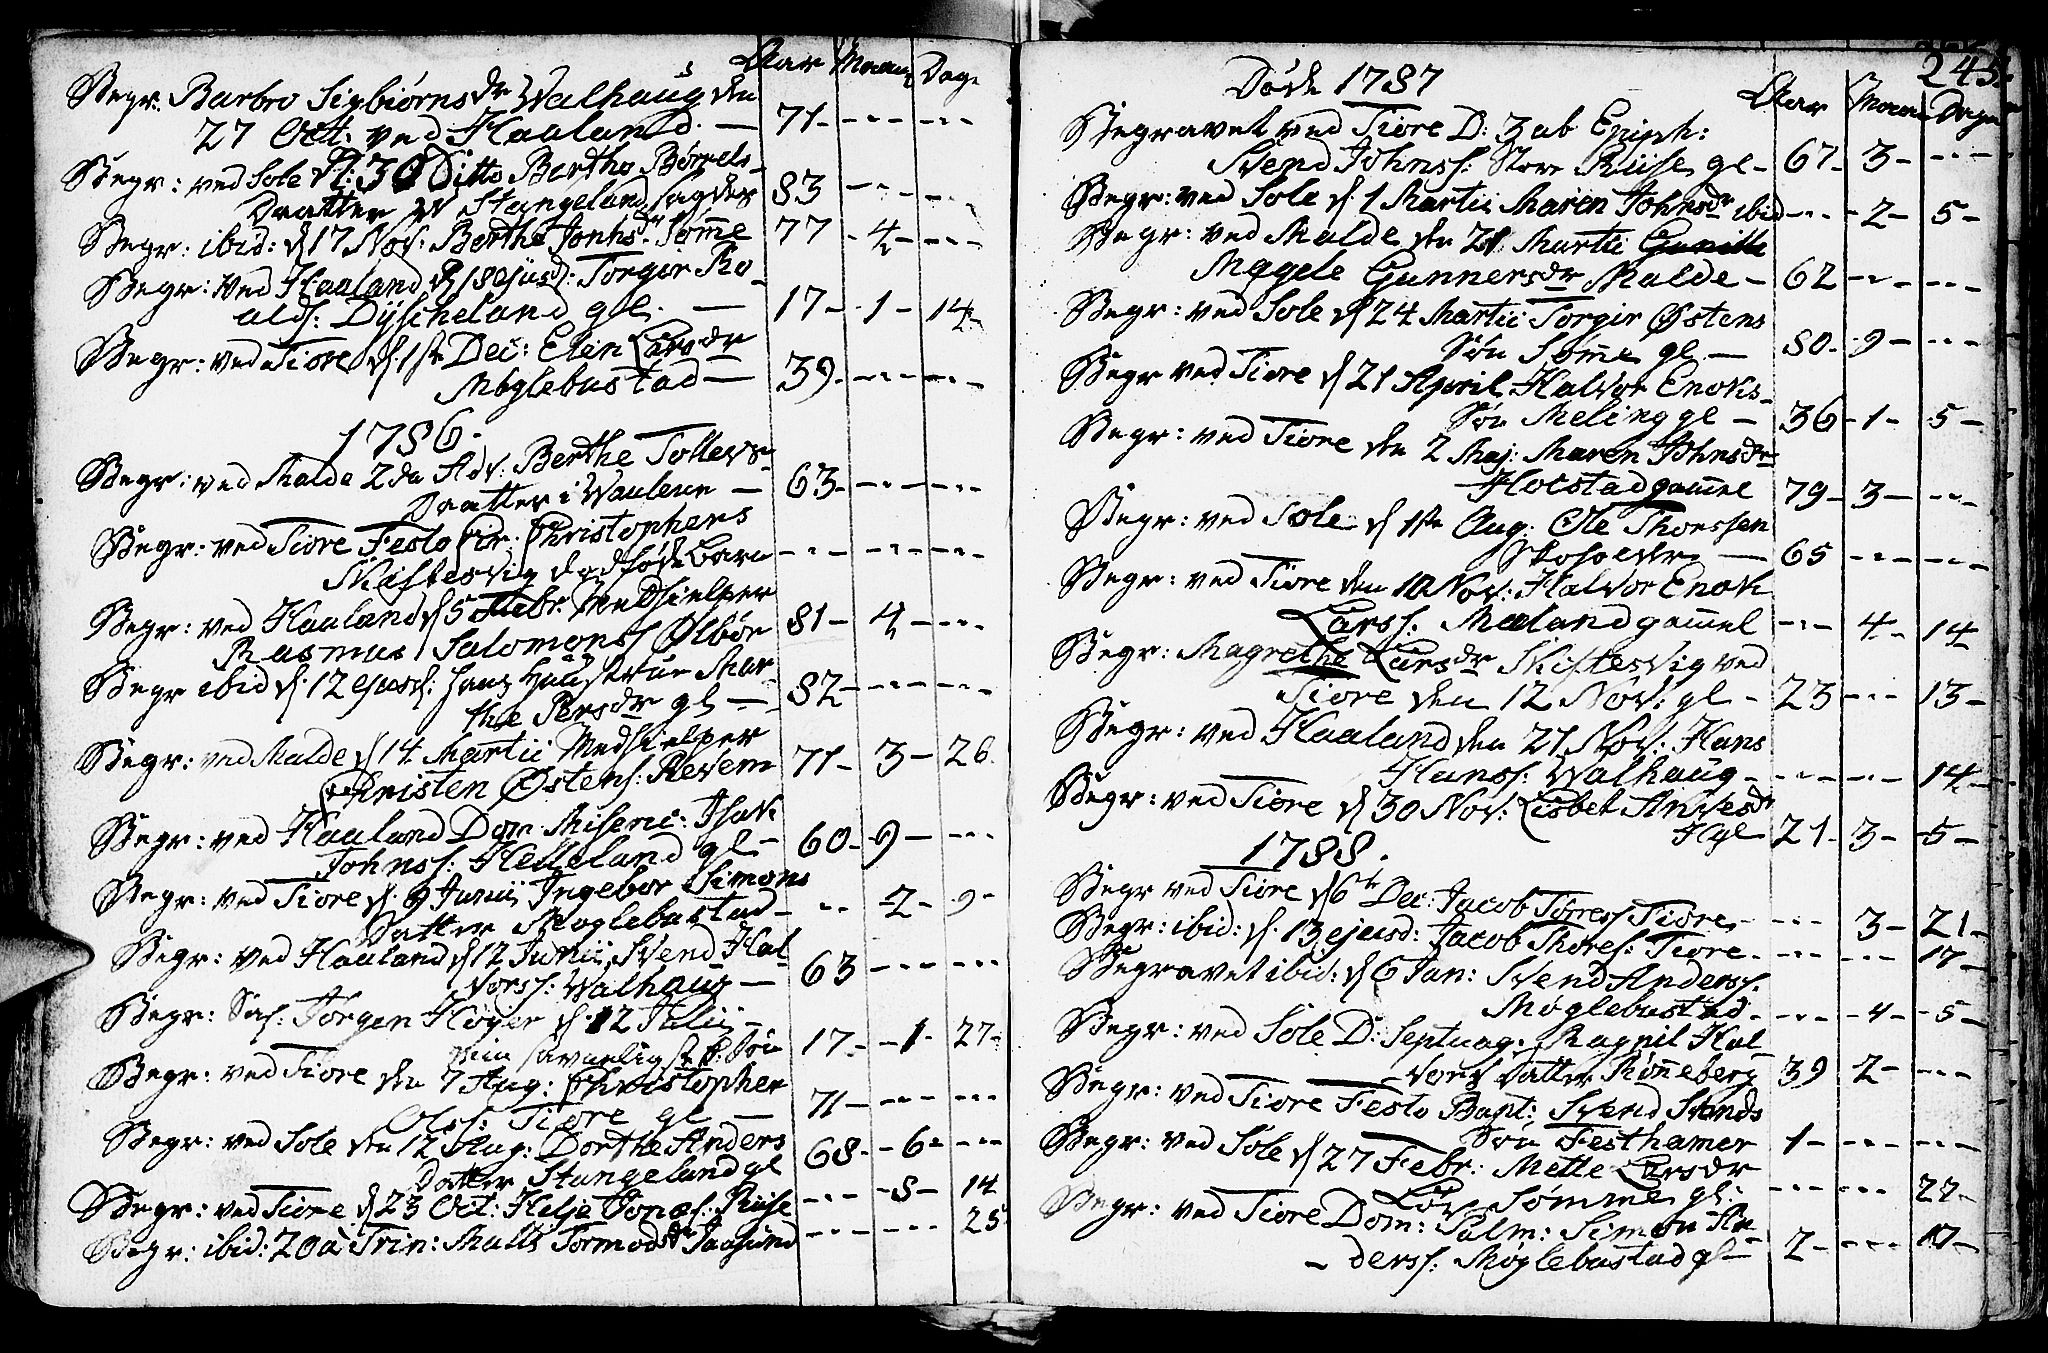 Aar Maan Dage
Begr. Barbro Sigbiørnsdr Walhaug den
27 Oct: ved Haaland — 71 - - -
Begr: ved Sole d: 30 Ditto Berthe Børrels-
Daatter Stangeland 83 - - -
Begr: ibid: d 17 Nov: Berthe Jonhsdr Sømme 77 - 4 - - -
Begr: ved Haaland d 18 ejusd: Torgir Ro-
alds: Dyscheland gl. — 17 - 1 - 14
Begr: ved Tiore d. 1ste Dec: Elen Larsdr
Møglebustad — 39 - - -
1786.
Begr: ved Malde 2da Adv: Berthe Tollevs-
Daatter i Waulene — 63 - - -
Begr: ved Tiore Festo Cir: Christophers
Skiftesvig dødfødt barn - - -
Begr: ved Haaland d 5 Febr. Medhielper
Rasmus Salomons: Ølbør 81 - 4 - - -
Begr ibid d. 12 ejusd: hans Hustrue Mar-
the Persdr gl — 82 - - -
Begr: ved Malde d 14 Martii Medhielper
Christen Østens: Revem 71 - 3 - 26
Begr: ved Haaland Dom: Miseric: Isak
Johnss: Helleland gl - 60 - 9 - - -
Begr: ved Tiore d. 9 Junii Ingebor Simons
Datter Møglebustad - - - 2 - 9 -
Begr: ved Haaland d 12 Junii Svend Hal-
vorss: Walhaug — 63 - - -
Begr: Sal: Jørgen Høyer d. 12 Julii -
min Søn 17 - 1 - 27 -
Begr: ved Tiore den 7 Aug: Christopher
Olss: Tiore gl — 71 - - -
Begr: ved Sole den 12 Aug: Dorthe Anders
Datter Stangeland gl 68 - 6 - - -
Begr: ved Tiore d 23 Oct: Helje Jonas: Riise - - - 8 - 14
Begr: ibid: 20a Trin: Malts Tormodsdr Jaasund - - - 25
245.
Døde 1787
Aar Maan Dage
Begravet ved Tiore D: 3 ab Epiph:
Svend Johnss: Store Riise gl - 67 - 3 - - -
Begr: ved Sole d. 1 Martii Maren Johnsdr ibid - - - 2 - 5 -
Begr: ved Malde den 21 Martii
Magele Gunnersdr Malde - 62 - - -
Begr: ved Sole d 24 Martii Torgir Østens
Søn Sømme gl — 80 - 9 - - -
Begr ved Tiore d 21 April Halvor Enoks-
Søn Meling gl — 36 - 1 - 5 -
Begr: ved Tiore den 2 Maj: Maren Johnsdr
Hocstad gammel 79 - 3 - - -
Begr: ved Sole d 1ste Aug: Ole Thorssen
— 65 - - -
Begr: ved Tiore den 10 Nov: Halvor Enok
Larss: Meeland gammel - - - 4 - 14
Begr: Magrethe Larsdr Skiftesvig ved
Tiore den 12 Nov: gl - 23 - - - 13 -
Begr: ved Haaland den 21 Nov: Hans
Hanss: Walhaug - - - 14 -
Begr: ved Tiore d 30 Nov: Lisbet
21 - 3 - 5 -
1788.
Begr ved Tiore d 6te Dec: Jacob Tørress Tiore - - - 3 - 21 -
Begr: ibid: d. 13 ejusd: Jacob Thores: Tiore - - - 17 -
Begravet ibid: d 6 Jan: Svend Anderss.
Møglebustad - - - 4 - 5 -
Begr: ved Sole D: Septuag: Ragnil Hal-
vors Datter Rønneberg 39 2 - - -
Begr: ved Tiore Festo Bapt: Svend Svends
Søn Testhamer 1 - - -
Begr: ved Sole d 27 Febr: Mette Larsdr
Sømme gl: - - - 22 -
Begr: ved Tiore Dom: Palm: Simon An-
- derss: Møglebustad gl — 2 - - - 17 -